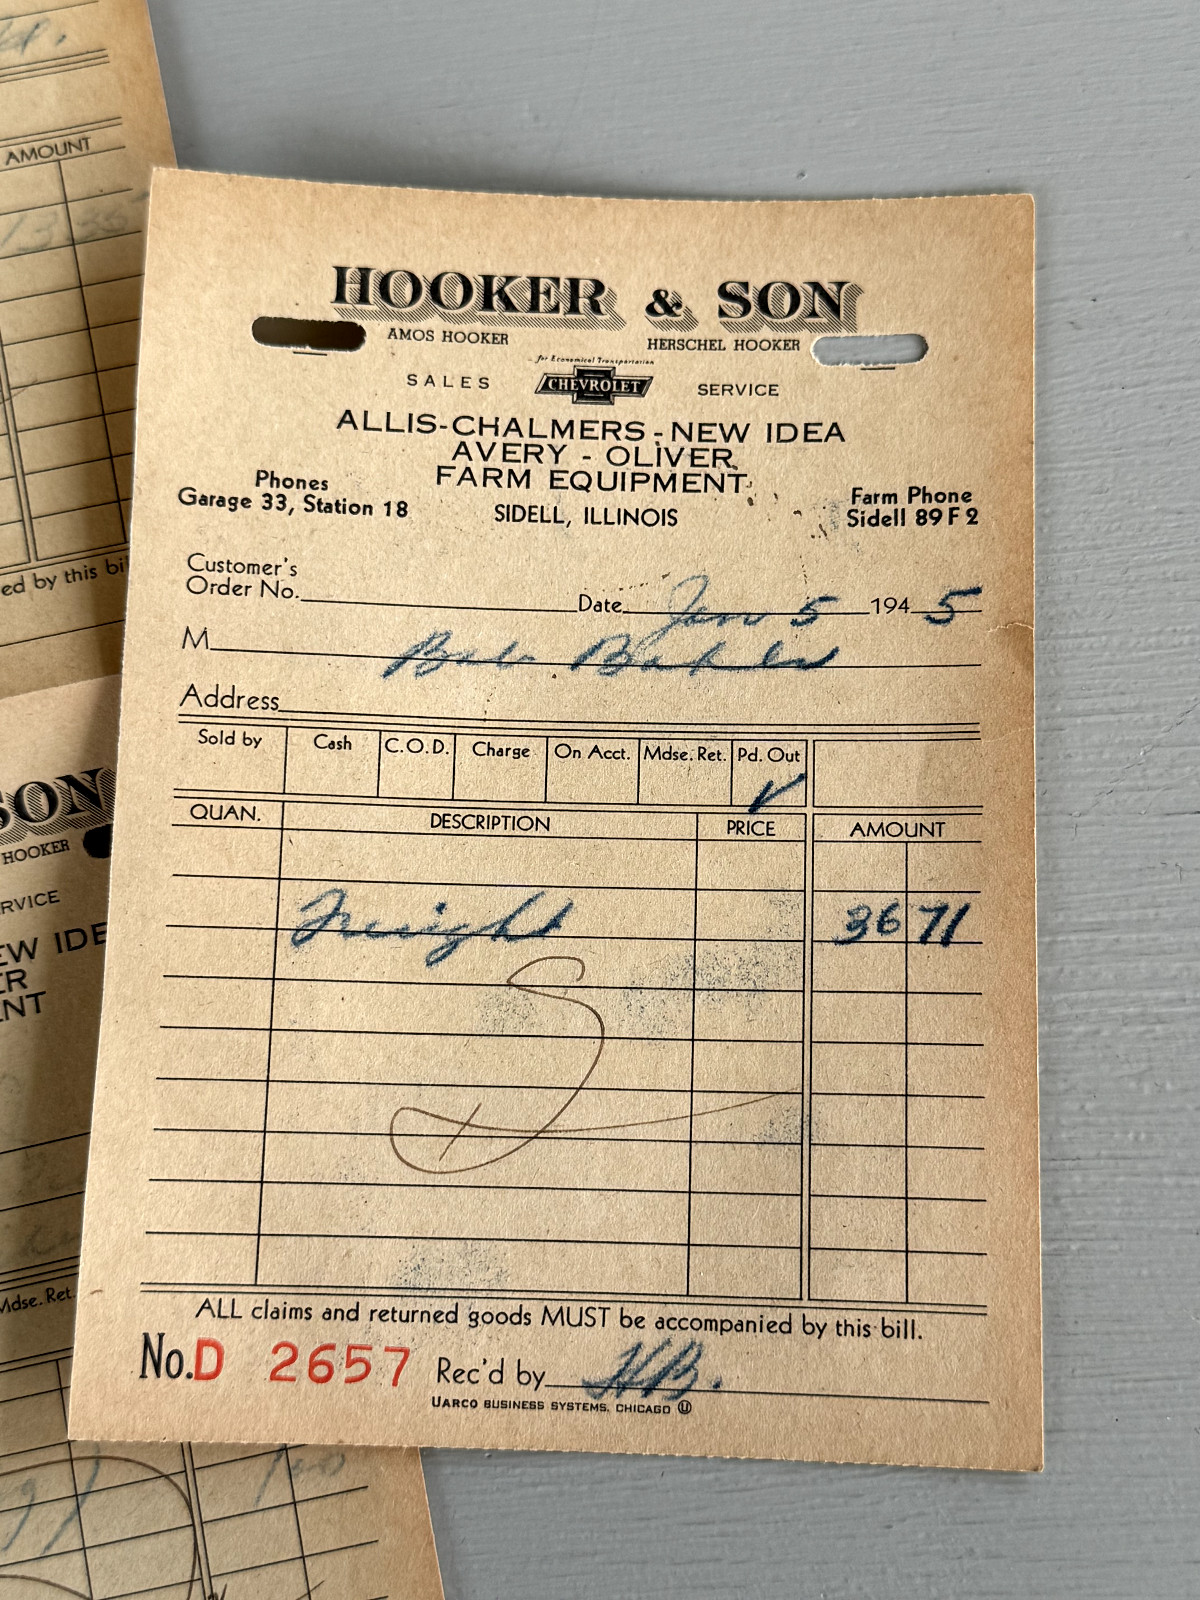 AMOUNT
13 35
ed by this bi
HOOKER & SON
AMOS HOOKER HERSCHEL HOOKER
for Economical Transportation
SALES CHEVROLET SERVICE
ALLIS-CHALMERS - NEW IDEA
AVERY - OLIVER
FARM EQUIPMENT
Phones
Garage 33, Station 18
SIDELL, ILLINOIS
Farm Phone
Sidell 89 F 2
Customer's
Order No. Date Jan 5 194 5
M Bob Baker
Address
Sold by Cash C.O.D. Charge On Acct. Mdse. Ret. Pd. Out
QUAN. DESCRIPTION PRICE AMOUNT
Freight 36 71
ALL claims and returned goods MUST be accompanied by this bill.
No. D 2657 Rec'd by HB.
UARCO BUSINESS SYSTEMS, CHICAGO U
SON
HOOKER
RVICE
EW IDE
ER
ENT
Mdse. Ret.